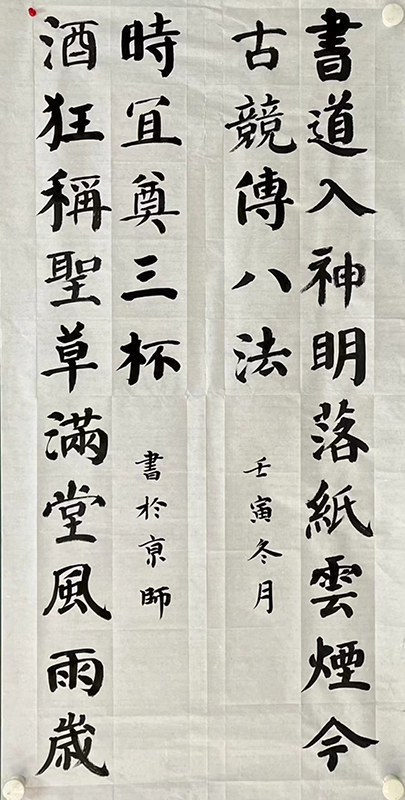 書道入神明落紙雲煙今
古競傳八法
壬寅冬月
酒狂稱聖草滿堂風雨歲
時宜奠三杯
書於京師